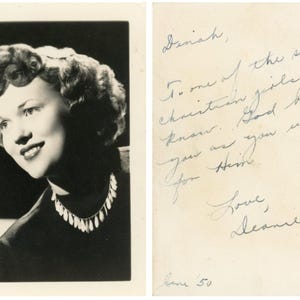 Dinah,
To one of the s
christian girls
know. God b
you as you w
for Him
Love,
Deanie
June '50